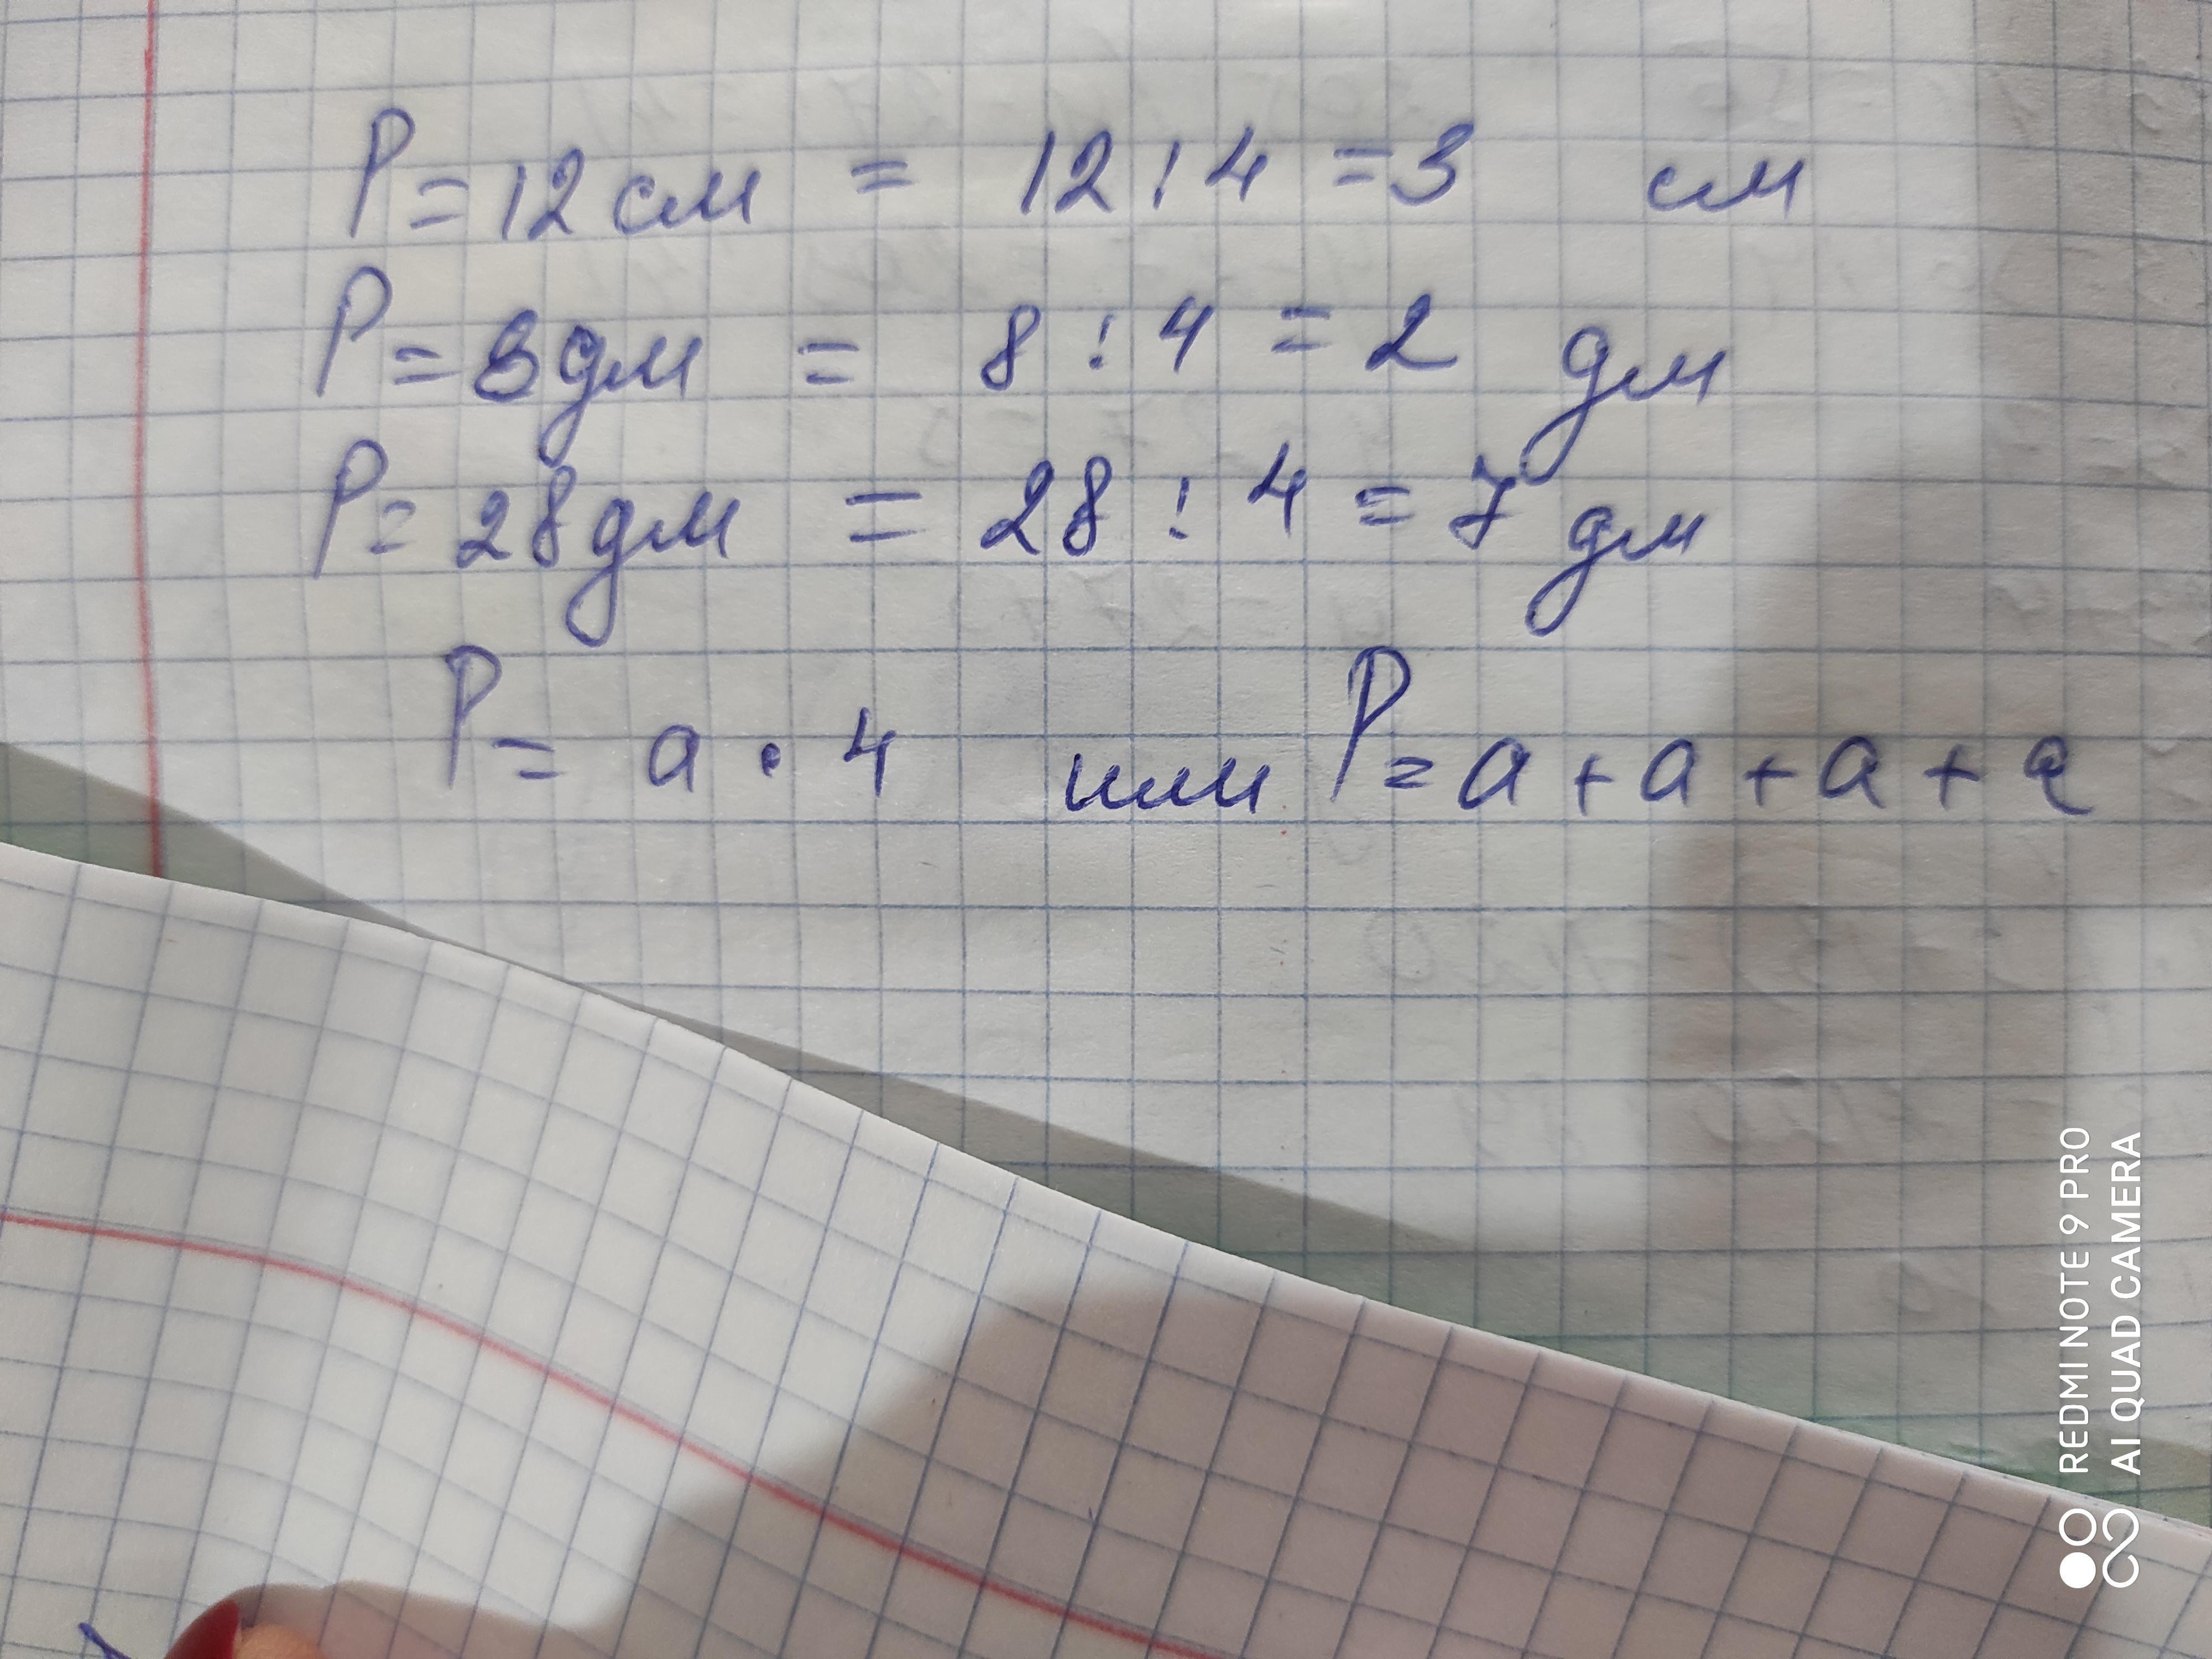 P = 12 см = 12 : 4 = 3 см
P = 8 дм = 8 : 4 = 2 дм
P = 28 дм = 28 : 4 = 7 дм
P = a · 4 или P = a + a + a + a
REDMI NOTE 9 PRO
AI QUAD CAMERA